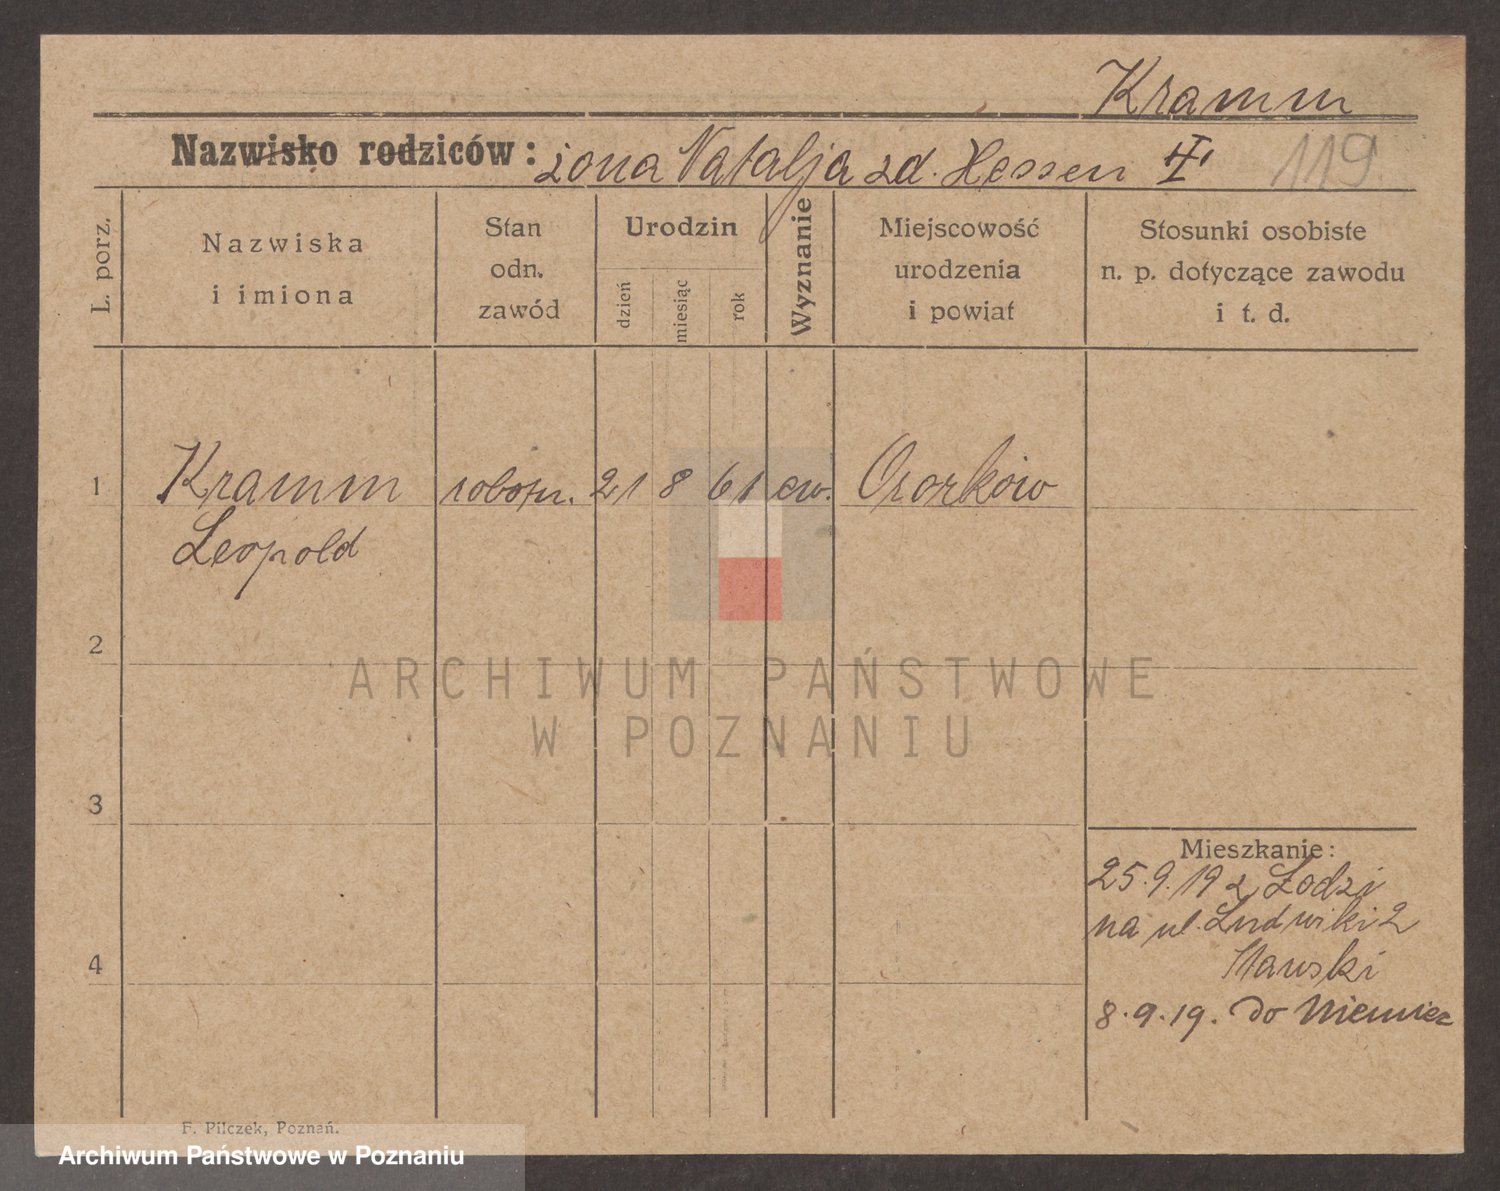 Kramm
Nazwisko rodziców: żona Natalja zd. Hessen II 119
L. porz.
Nazwiska
i imiona
Stan
odn.
zawód
Urodzin
dzień
miesiąc
rok
Wyznanie
Miejscowość
urodzenia
i powiat
Stosunki osobiste
n. p. dotyczące zawodu
i t. d.
1 Kramm robotn. 21 8 61 ew. Ozorków
Leopold
2
ARCHIWUM PAŃSTWOWE
W POZNANIU
3
Mieszkanie:
25.9.19 z Łodzi
na ul. Ludwiki 2
Stawski
4
8.9.19. do Niemiec
F. Pilczek, Poznań.
Archiwum Państwowe w Poznaniu